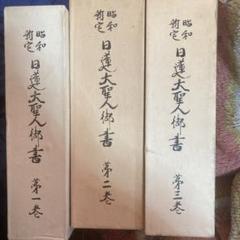 昭和
新定
日蓮大聖人御書
第一巻
昭和
新定
日蓮大聖人御書
第二巻
昭和
新定
日蓮大聖人御書
第三巻